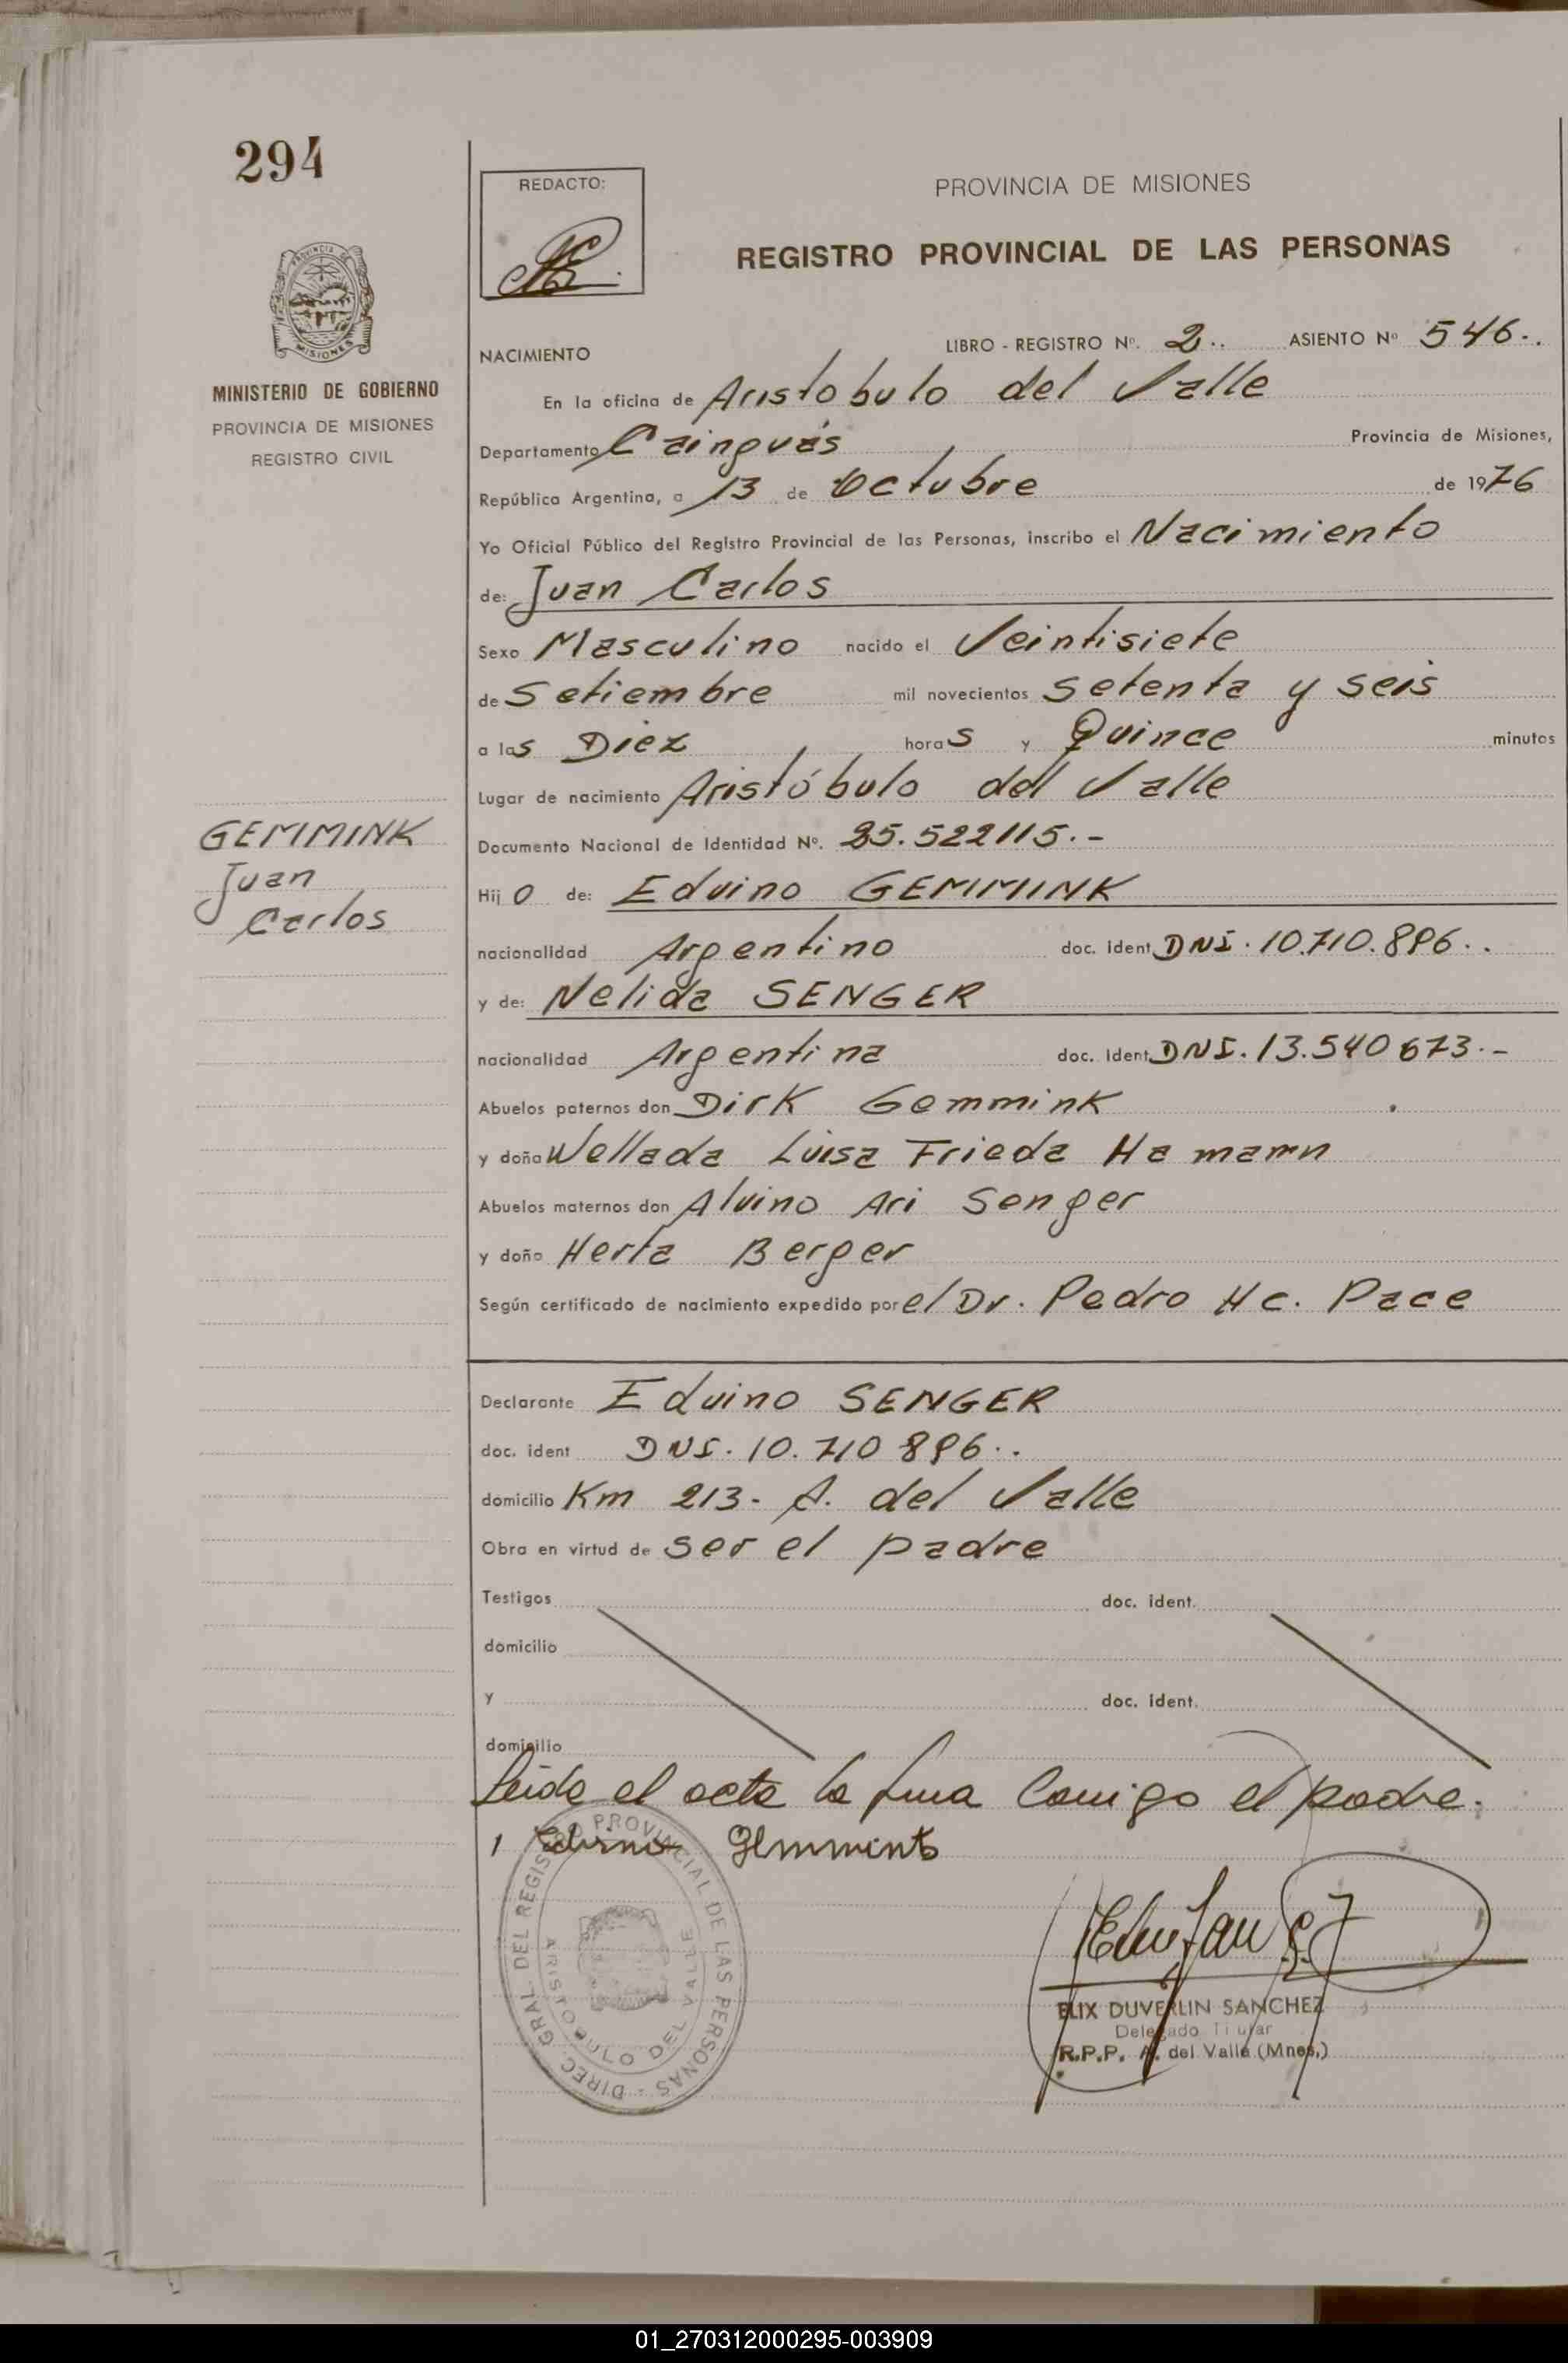 294
REDACTO:
PROVINCIA DE MISIONES
REGISTRO PROVINCIAL DE LAS PERSONAS
PROVINCIA DE
MISIONES
MINISTERIO DE GOBIERNO
PROVINCIA DE MISIONES
REGISTRO CIVIL
NACIMIENTO
LIBRO - REGISTRO Nº. 2.. ASIENTO Nº 546..
En la oficina de Aristobulo del Valle
Departamento Cainguás Provincia de Misiones,
República Argentina, a 13 de Octubre de 1976
Yo Oficial Público del Registro Provincial de las Personas, inscribo el Nacimiento
de: Juan Carlos
Sexo Masculino nacido el Veintisiete
de Setiembre mil novecientos setenta y seis
a las Diez horas y Quince minutos
Lugar de nacimiento Aristóbulo del Valle
GEMMINK
Juan
Carlos
Documento Nacional de Identidad Nº. 25.522115.-
Hijo de: Eduino GEMMINK
nacionalidad Argentino doc. ident DNI. 10.710.896..
y de: Nelida SENGER
nacionalidad Argentina doc. Ident. DNI. 13.540673.-
Abuelos paternos don Dirk Gemmink
y doña Wellada Luisa Frieda Hamann
Abuelos maternos don Alvino Ari Senger
y doña Herta Berger
Según certificado de nacimiento expedido por el Dr. Pedro Hc. Pace
Declarante Eduino SENGER
doc. ident DNI. 10.710896..
domicilio Km 213- A. del Valle
Obra en virtud de ser el padre
Testigos doc. ident.
domicilio
y doc. ident.
domicilio
Leida el acta la firma Conmigo el padre.
Gemmink
DIREC. GRAL. DEL REGISTRO PROVINCIAL DE LAS PERSONAS -
ARISTOBULO DEL VALLE
ELIX DUVERLIN SANCHEZ
Delegado Titular
R.P.P. A. del Valle (Mnes.)
01_270312000295-003909